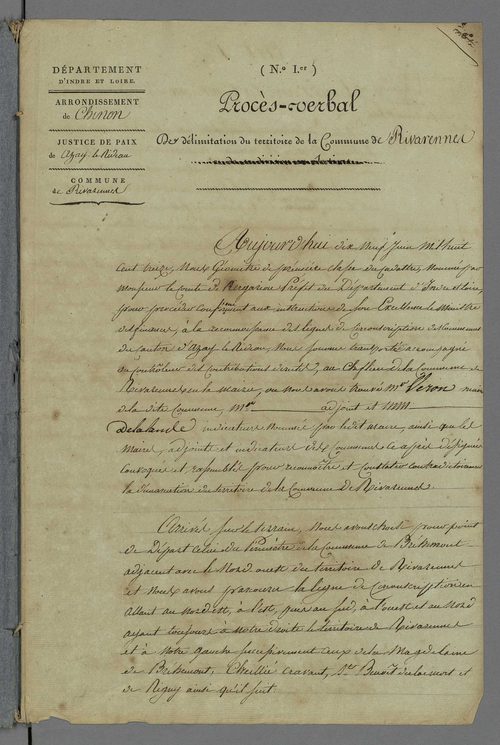 DÉPARTEMENT
D'INDRE ET LOIRE.
ARRONDISSEMENT
de Chinon
JUSTICE DE PAIX
de Azay le Rideau
COMMUNE
de Rivarennes
(N.º I.er)
Procès-verbal
De délimitation du territoire de la Commune de Rivarennes
Aujourd'hui dix neuf Juin mil huit
Cent treize, Nous Géomètre de première classe du cadastre, Nommé par
Monsieur le Comte de Kergariou Préfet du Département d'Indre et Loire,
pour procéder conformément aux instructions de Son Excellence le Ministre
des finances, à la reconnaissance des lignes de Circonscription des Communes
du Canton d'Azay le Rideau, Nous sommes transporté accompagné
du Contrôleur des Contributions directes, au Chef lieu de la Commune de
Rivarennes en la Mairie, ou Nous avons trouvé Mr. Veron maire
de la dite Commune, Mr. adjoint et MM
Delalande indicateur Nommé par le dit Maire, ainsi que les
Maires, adjoints et indicateurs des Communes ci après désignées
Convoqués et rassemblés pour reconnaître et Constater contradictoirement
la démarcation du territoire de la Commune De Rivarennes
Arrivés sur le terrain, Nous avons choisi pour point
de Départ Celui du Périmètre de la Commune de Bréhémont
adjacent avec le Nord ouest du territoire de Rivarennes
et Nous avons parcouru la ligne de Circonscription en
allant au nord est, à l'est, puis au sud, à l'ouest et au Nord
ayant toujours à Notre Droite le territoire de Rivarennes
et à Notre gauche successivement ceux de la Magdelaine
de Bréhémont, Cheillé Cravant, St. Benoît de la mort et
de Rigny ainsi qu'il suit